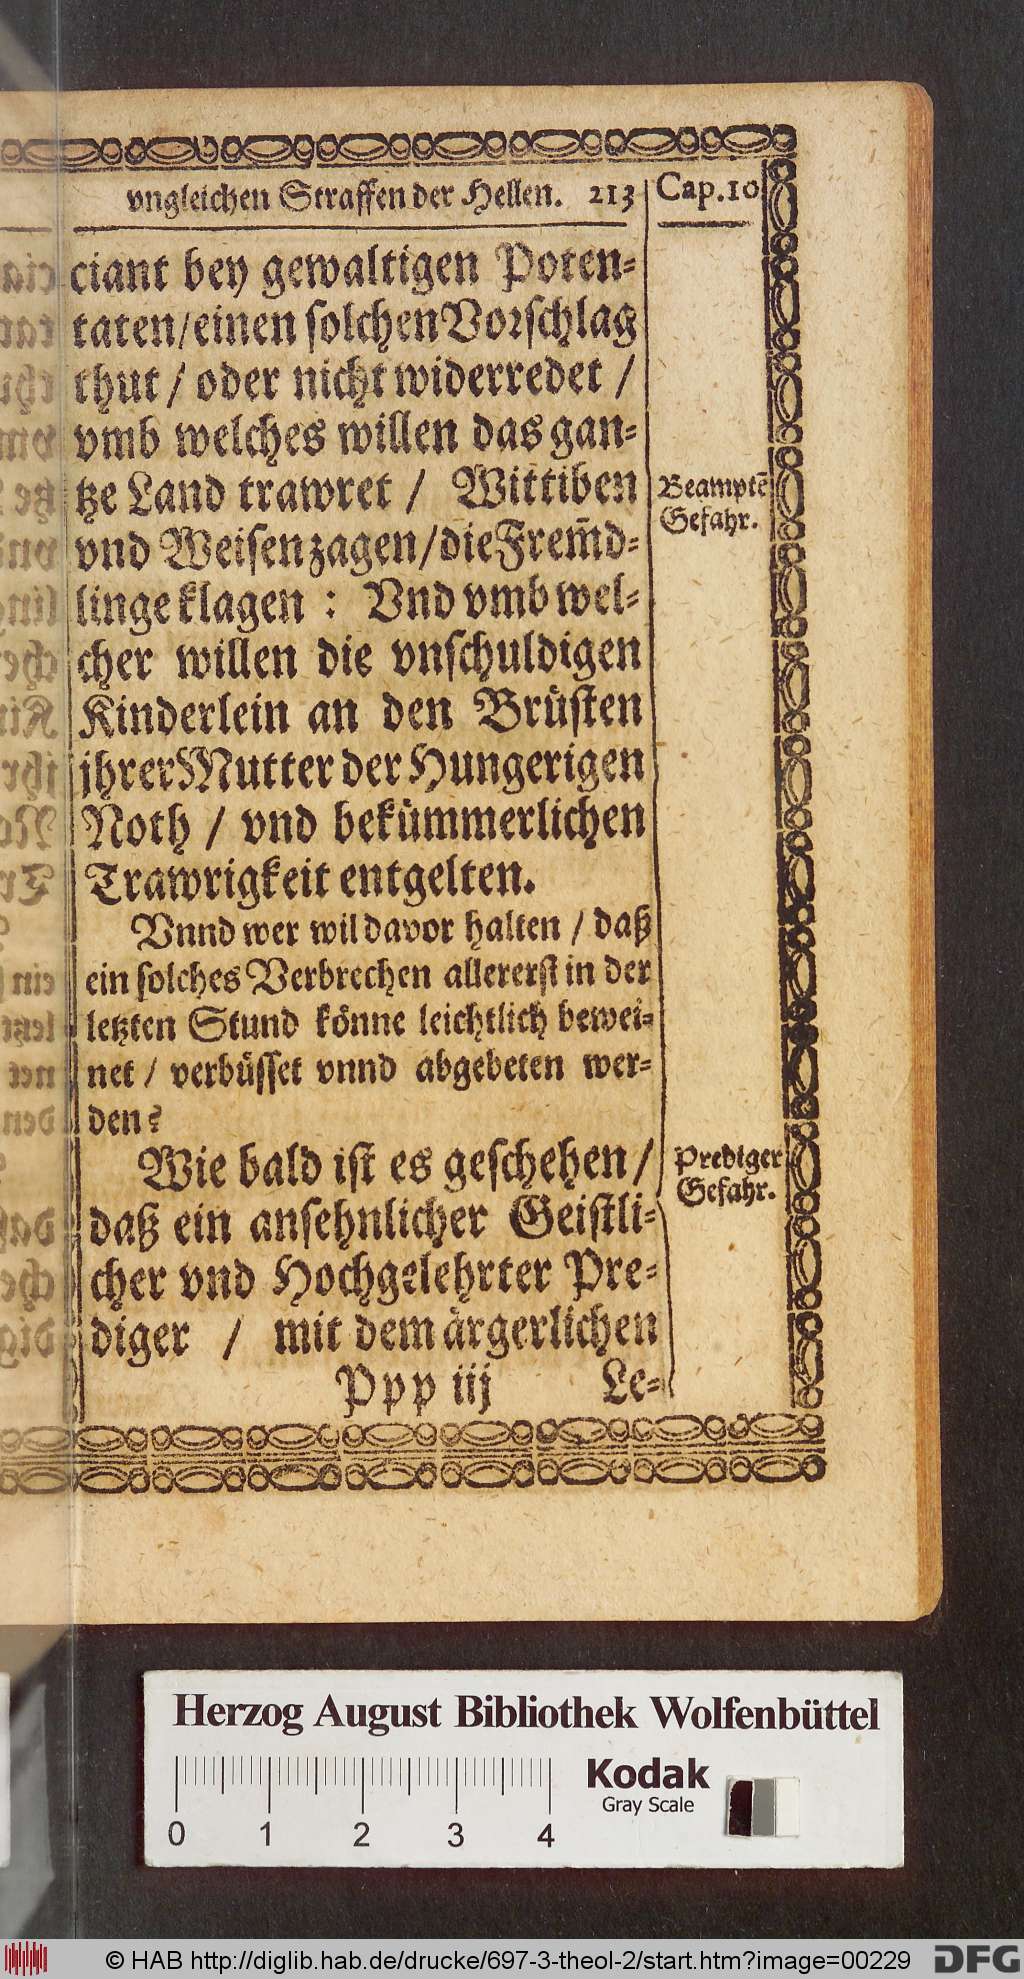 vngleichen Straffen der Hellen. 213 Cap.10
ciant bey gewaltigen Poten⸗
taten/einen solchen Vorschlag
thut / oder nicht widerredet /
vmb welches willen das gan⸗
tze Land trawret / Wittiben
vnd Weisen zagen/die Frem̃d⸗
linge klagen : Vnd vmb wel⸗
cher willen die vnschuldigen
Kinderlein an den Brüsten
jhrer Mutter der Hungerigen
Noth / vnd bekümmerlichen
Trawrigkeit entgelten.
Vnnd wer wil davor halten / daß
ein solches Verbrechen allererst in der
letzten Stund könne leichtlich bewei⸗
net / verbüsset vnnd abgebeten wer⸗
den?
Wie bald ist es geschehen /
daß ein ansehnlicher Geistli⸗
cher vnd Hochgelehrter Pre⸗
diger / mit dem ärgerlichen
Ppp iij Le⸗
Beamptē
Gefahr.
Prediger
Gefahr.
Herzog August Bibliothek Wolfenbüttel
Kodak
Gray Scale
0 1 2 3 4
© HAB http://diglib.hab.de/drucke/697-3-theol-2/start.htm?image=00229
DFG